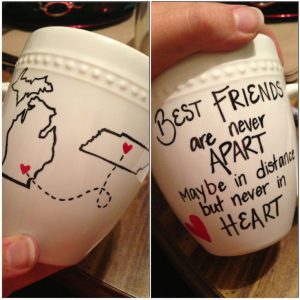 BEST FRIENDS
are never
APART
Maybe in distance
but never in
HEART